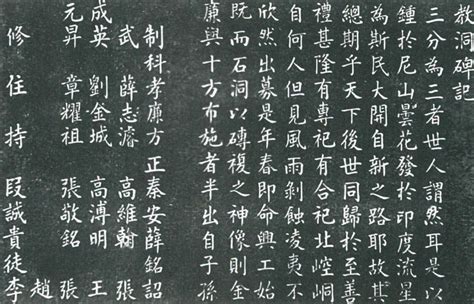 教洞碑記
三分為三者世人謂然耳是以
鍾於尼山曇花發於印度流星
為斯民大開自新之路耶故其
總期乎天下後世同歸於至善
禮甚隆有專祀有合祀北崆峒
自何人但見風雨剝蝕凌夷不
欣然出募是年春即命興工始
既而石洞以磚複之神像則金
廉與十方布施者半出自子孫
制科孝廉方正秦安薛銘詔
武 薛志濬 高維翰 張
成英 劉金城 高溥明 王
元昇 章耀祖 張敬銘 張
趙
修住持段誠貴徒李